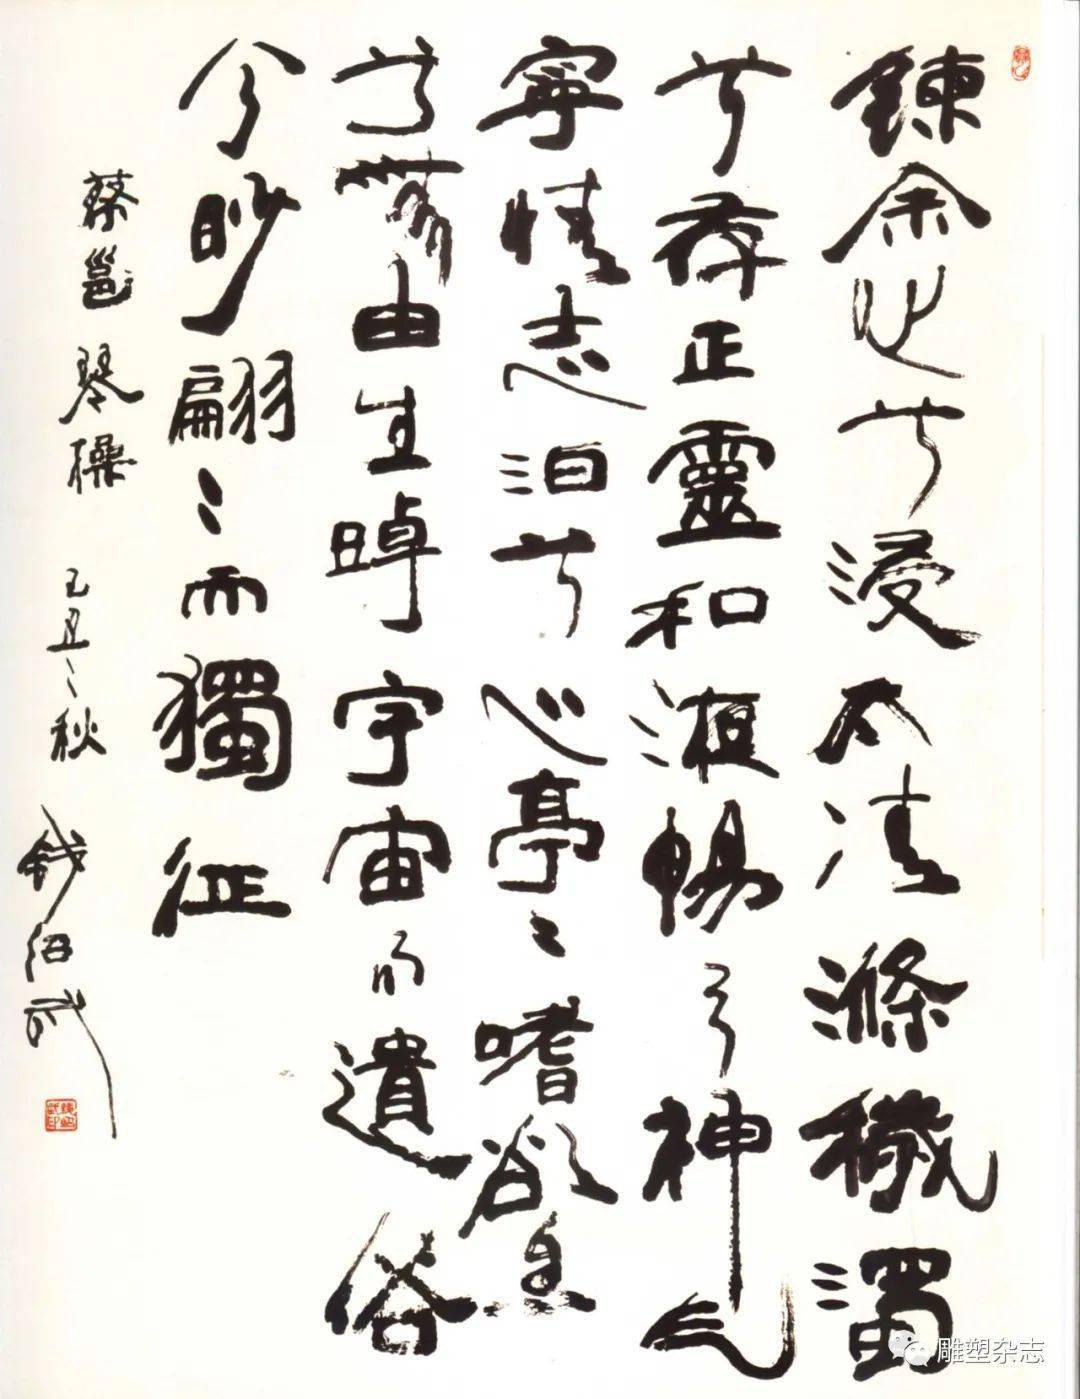 鍊余心兮浸太清滌穢濁
兮存正靈和液暢兮神气
寧情志泊兮心亭〻嗜欲息
兮無由生踔宇宙而遺俗
兮眇翩〻而獨征
蔡邕 琴操 己丑〻秋 錢紹武
雕塑杂志